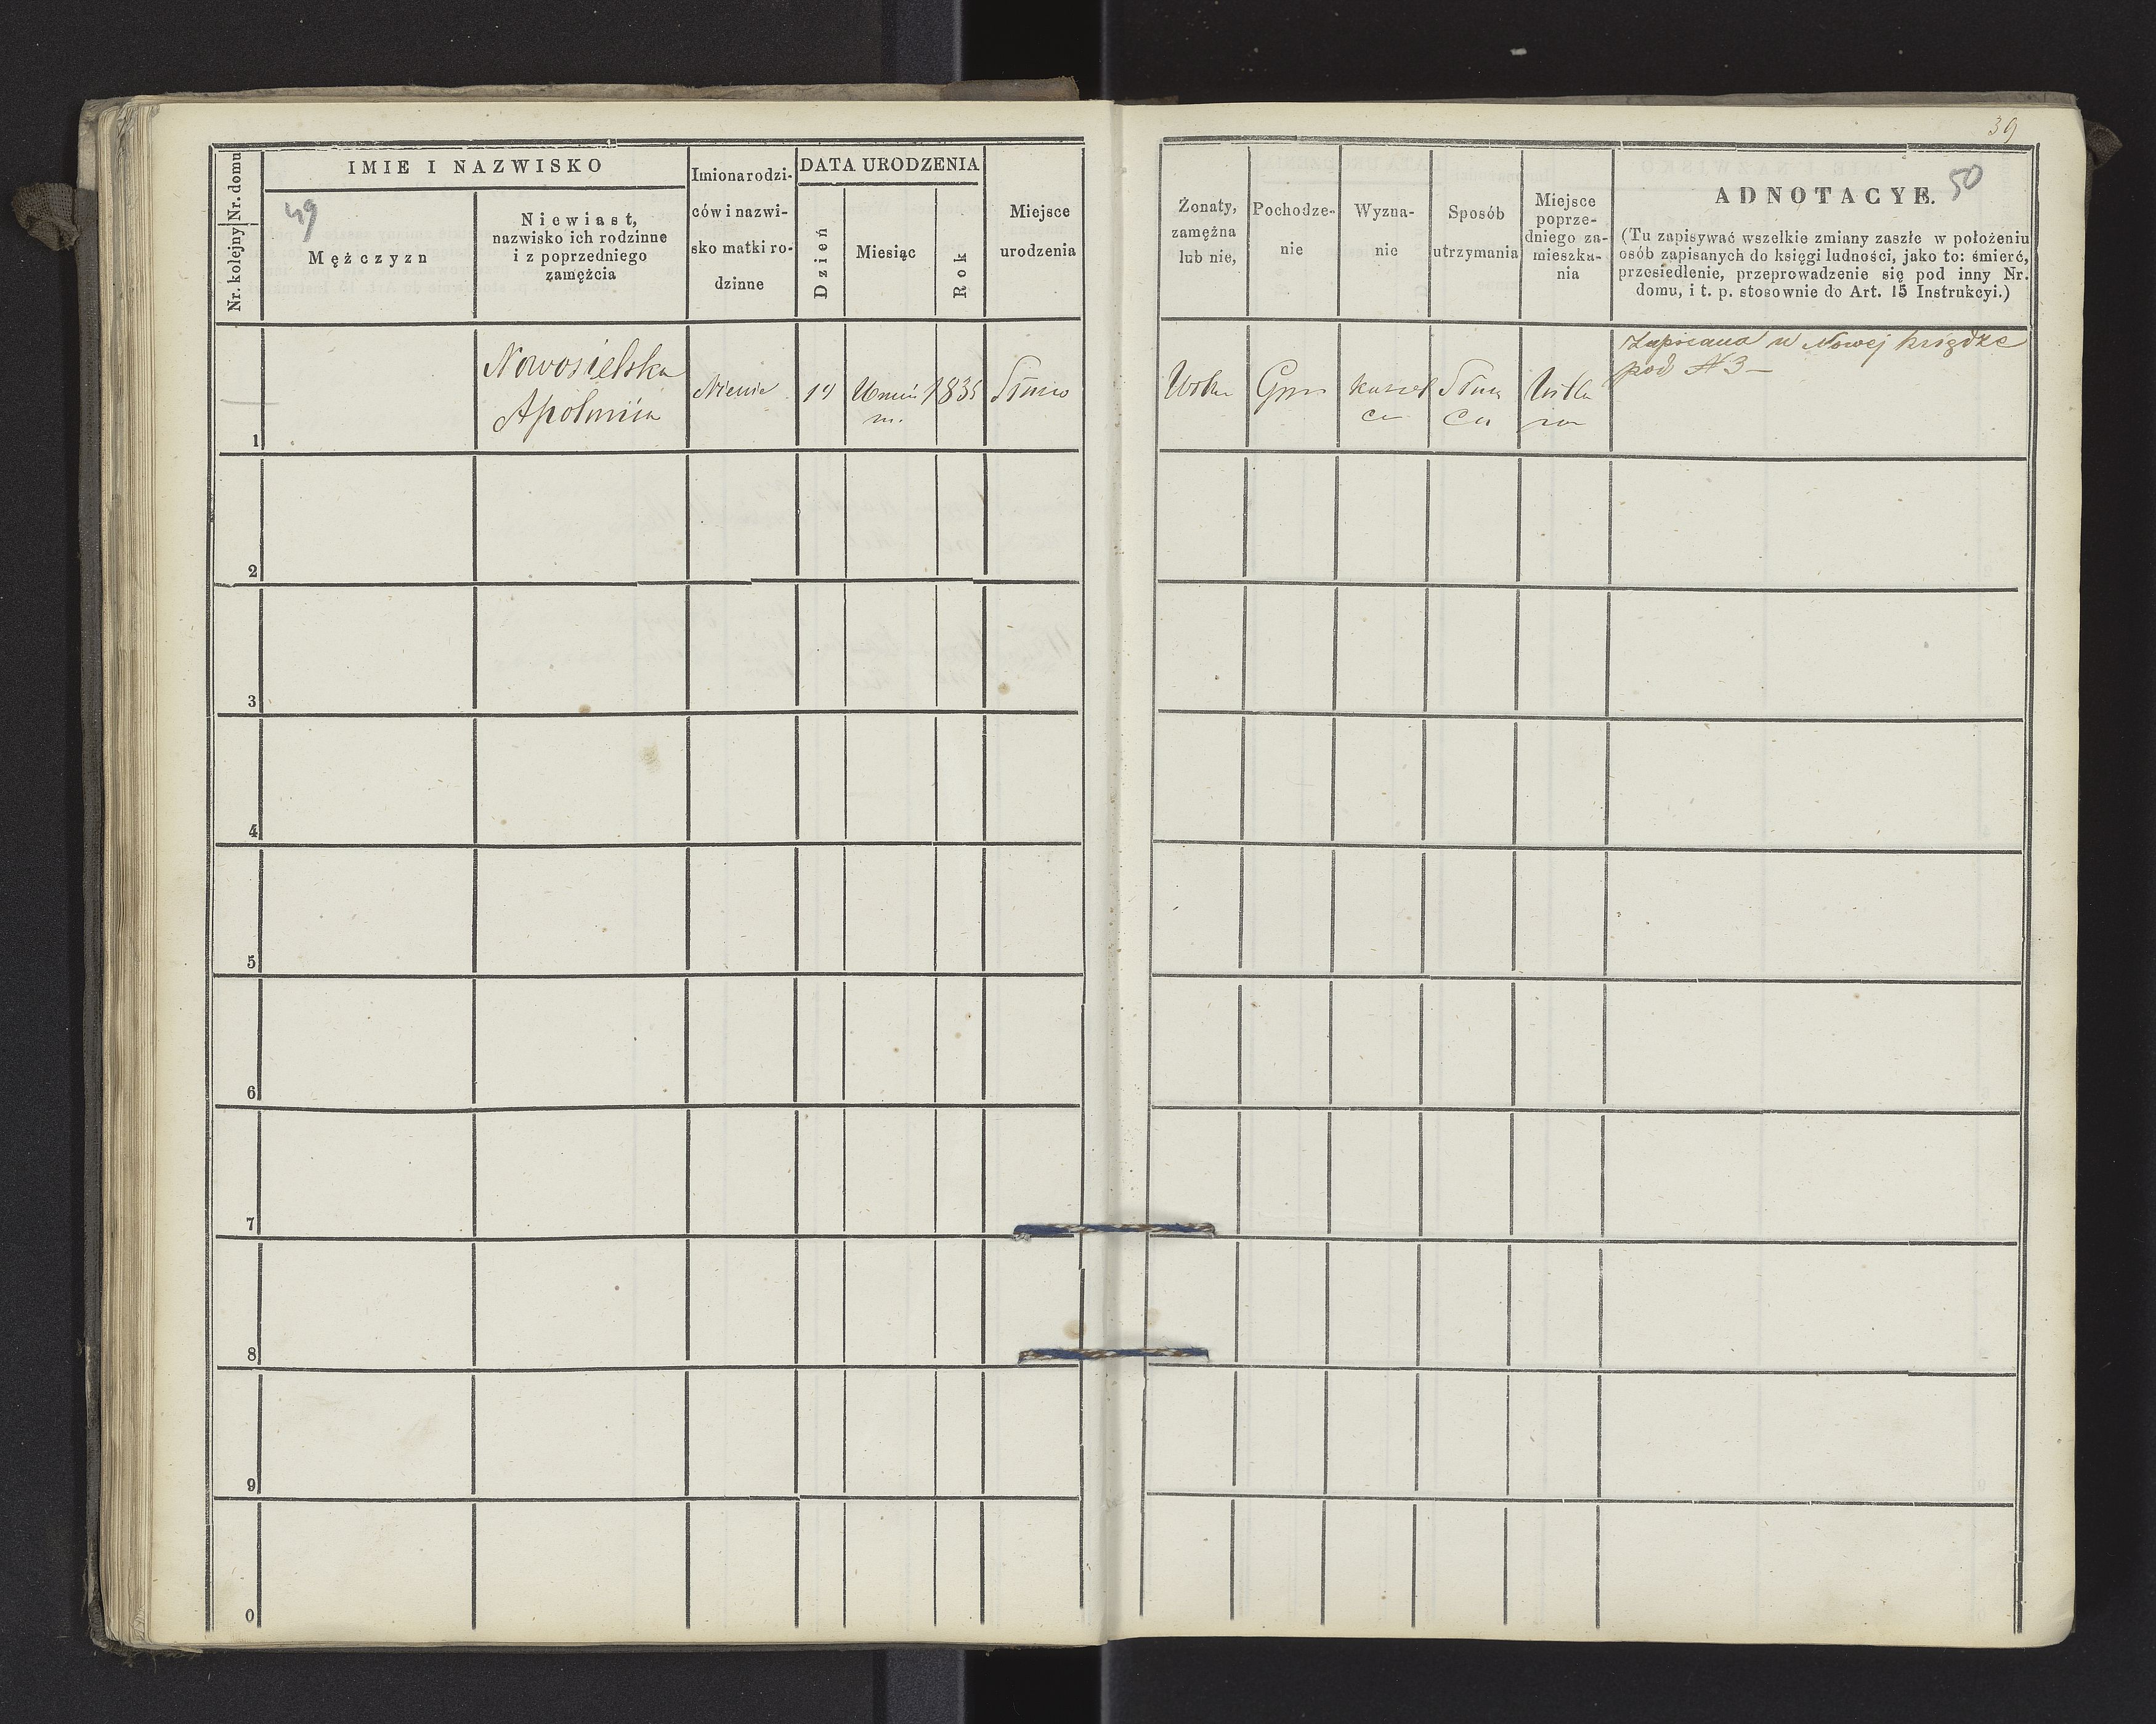 39
49
50
Nr. kolejny Nr. domu
IMIE I NAZWISKO
Mężczyzn
Niewiast,
nazwisko ich rodzinne
i z poprzedniego
zamężcia
Imiona rodzi-
ców i nazwi-
sko matki ro-
dzinne
DATA URODZENIA
Dzień
Miesiąc
Rok
Miejsce
urodzenia
Żonaty,
zamężna
lub nie,
Pochodze-
nie
Wyzna-
nie
Sposób
utrzymania
Miejsce
poprze-
dniego za-
mieszka-
nia
ADNOTACYE.
(Tu zapisywać wszelkie zmiany zaszłe w położeniu
osób zapisanych do księgi ludności, jako to: śmierć,
przesiedlenie, przeprowadzenie się pod inny Nr.
domu, i t. p. stosownie do Art. 15 Instrukcyi.)
1
Nowosielska
Apolonija
1835
Zapisana w Nowej książke
pod N 3
2
3
4
5
6
7
8
9
0